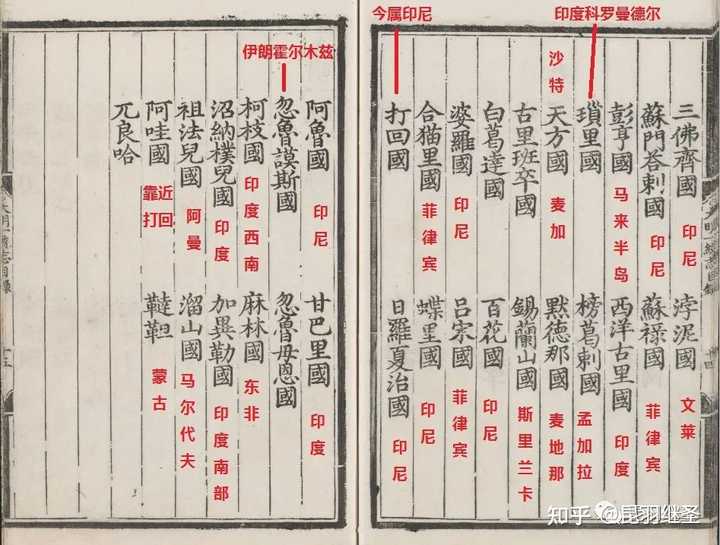 印度科罗曼德尔
今属印尼
伊朗霍尔木兹
三佛齊國 印尼 浡泥國 文莱
蘇門荅剌國 印尼 蘇祿國 菲律宾
彭亨國 马来半岛 西洋古里國 印度
瑣里國 榜葛剌國 孟加拉
沙特 天方國 麦加 默德那國 麦地那
古里班卒國 錫蘭山國 斯里兰卡
白葛達國 百花國 印尼
婆羅國 印尼 呂宋國 菲律宾
合猫里國 菲律宾 蝶里國 印尼
打回國 日羅夏治國 印尼
阿魯國 印尼 甘巴里國 印度
忽魯謨斯國 忽魯母恩國
柯枝國 印度西南 麻林國 东非
沼納樸兒國 印度 加異勒國 印度南部
祖法兒國 阿曼 溜山國 马尔代夫
阿哇國 靠近打回 韃靼 蒙古
兀良哈
大明一統志目録
知乎 @昆羽继圣